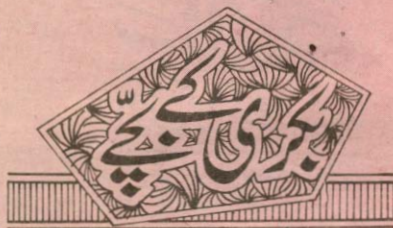 بکری کے بچّے